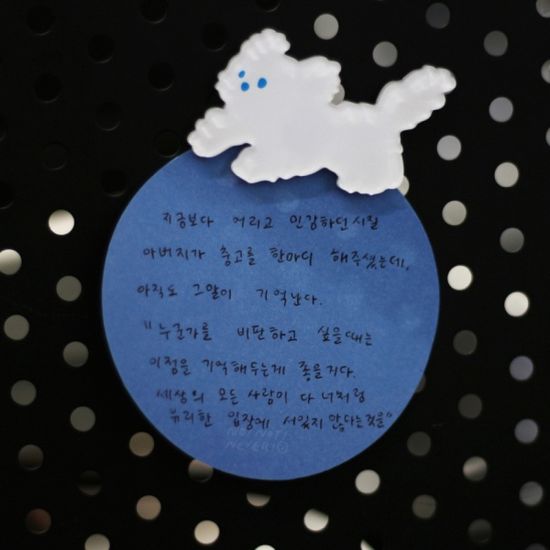 지금보다 어리고 민감하던시절
아버지가 충고를 한마디 해주셨는데,
아직도 그말이 기억난다.
"누군가를 비판하고 싶을때는
이점을 기억해두는게 좋을거다.
세상의 모든 사람이 다 너처럼
유리한 입장에 서있지 않다는것을"
NEVER!